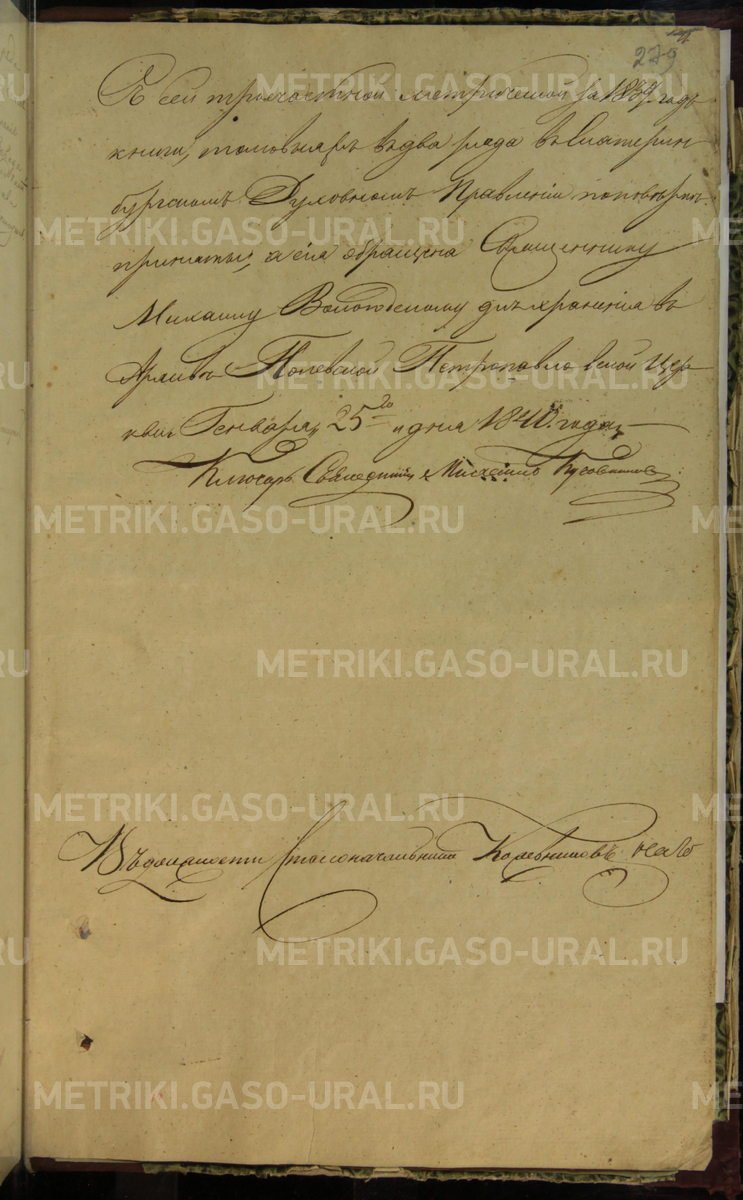 279
сей трехчастной метрической за 1839. годъ
книги, таковыяжъ въ два ряда въ Екатерин
бургскомъ Духовномъ Правленіи по повѣркѣ
приняты, а сія обращена Священнику
Михаилу для храненія въ
Архивѣ Полевской Петропавловской Цер
кви. Генваря 25го дня 1840. года,
Ключарь Священникъ Михаилъ
Въ должности Столоначальника
METRIKI.GASO-URAL.RU